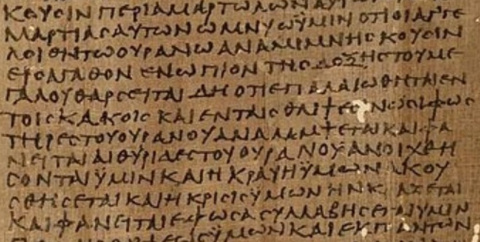 ΚΟΥΣΙΝ ΠΕΡΙ ΑΜΑΡΤΩΛΩΝ ΑΥΤ
ΜΑΡΤΙΑΣ ΑΥΤΩΝ ΩΜΝΥΩ ΫΜΙΝ ΟΤΙ ΟΙ ΑΓΓΕ
ΛΟΙ ΕΝ ΤΩ ΟΥΡΑΝΩ ΑΝΑΜΙΜΝΗΣΚΟΥΣΙΝ
ΕΙΣ ΑΓΑΘΟΝ ΕΝΩΠΙΟΝ ΤΗΣ ΔΟΞΗΣ ΤΟΥ ΜΕ
ΓΑΛΟΥ ΘΑΡΣΕΙΤΑΙ ΔΗ ΟΤΙ ΕΠΑΛΑΙΩΘΗΤΑΙ ΕΝ
ΤΟΙΣ ΚΑΚΟΙΣ ΚΑΙ ΕΝ ΤΑΙΣ ΘΛΙΨΕΣΙΝ ΩΣΕΙ ΦΩΣ
ΤΗΡΕΣ ΤΟΥ ΟΥΡΑΝΟΥ ΑΝΑΛΑΜΨΕΤΑΙ ΚΑΙ ΦΑ
ΝΕΙΤΑΙ ΑΙ ΘΥΡΙΔΕΣ ΤΟΥ ΟΥΡΑΝΟΥ ΑΝΟΙΧΘΗ
ΣΟΝΤΑΙ ΫΜΙΝ ΚΑΙ Η ΚΡΑΥΓΗ ΫΜΩΝ ΑΚΟΥ
ΣΘΗΣΕΤΑΙ ΚΑΙ Η ΚΡΙΣΙΣ ΫΜΩΝ ΗΝ ΚΡΑΖΕΤΑΙ
ΚΑΙ ΦΑΝΕΙΤΑΙ ΕΦ ΟΣΑ ΣΥΛΛΑΒΗΣΕΤΑΙ ΫΜΙΝ
ΫΜΩΝ ΚΑΙ ΕΚ ΠΑΝΤΩΝ